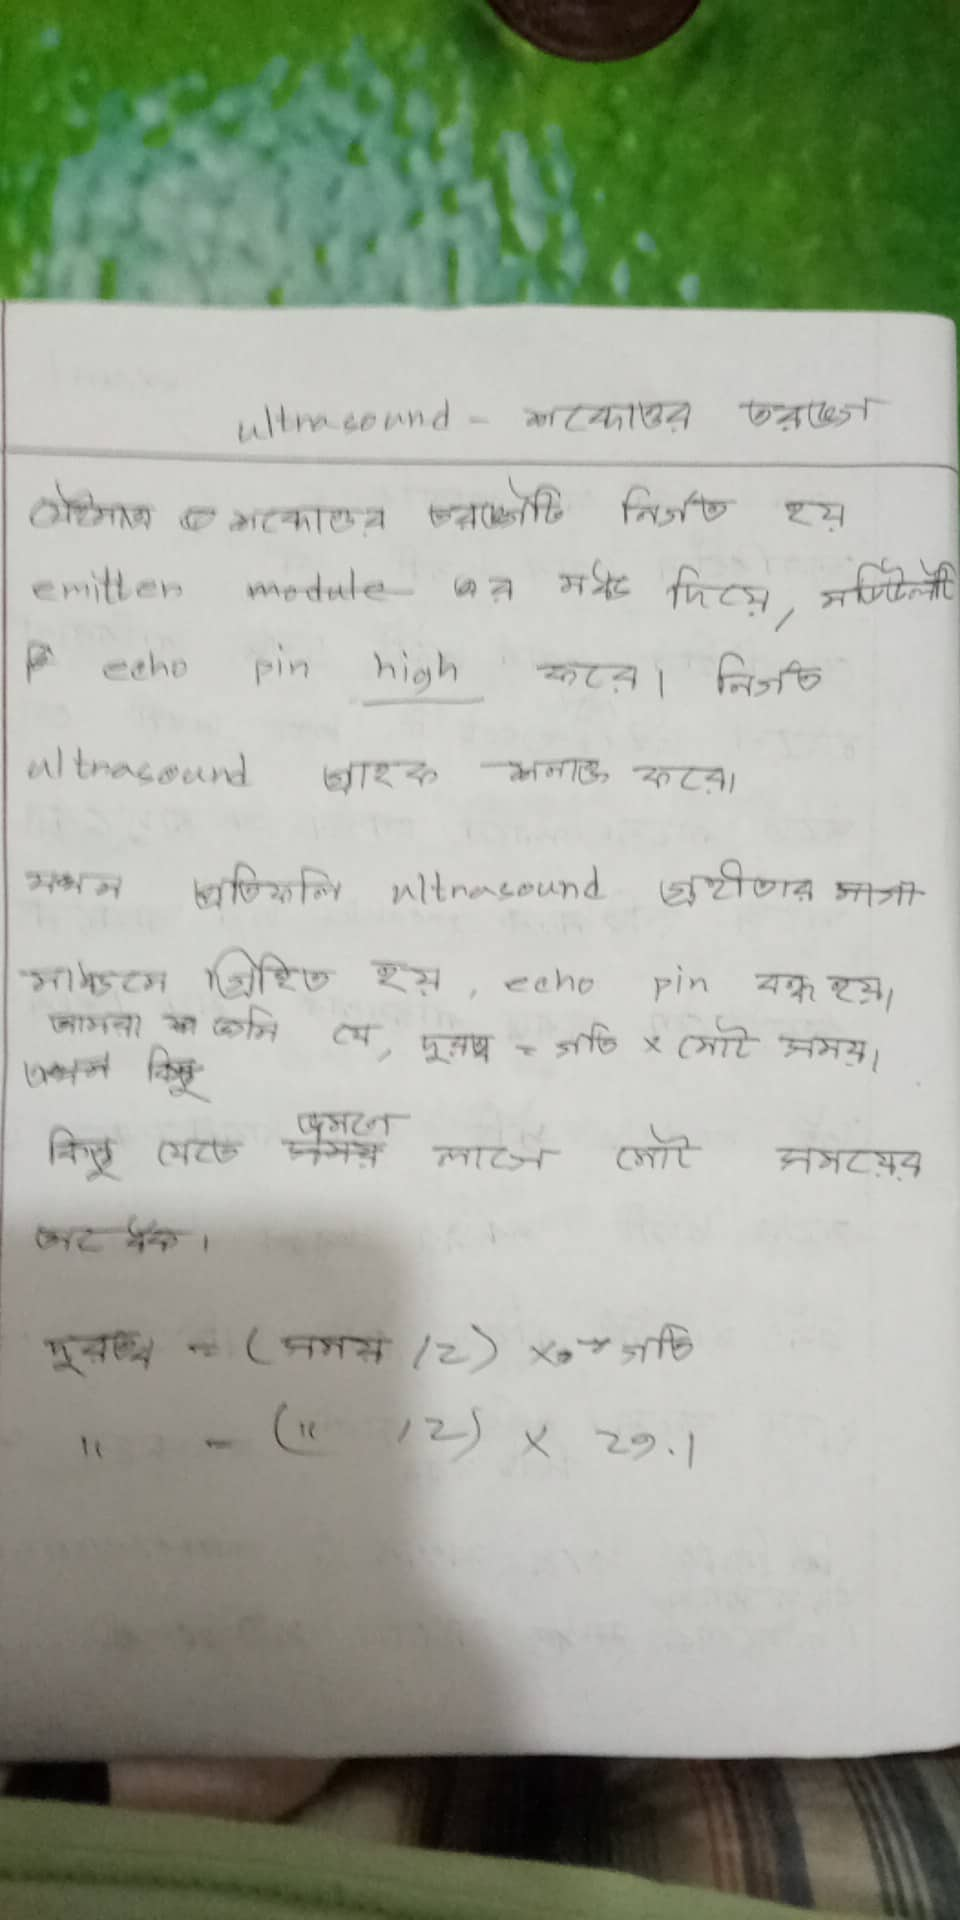 ultrasound - শব্দোত্তর তরঙ্গ
যেইমাত্র শব্দোত্তর তরঙ্গটি নির্গত হয়
emitter module এর মধ্য দিয়ে,
echo pin high করে। নির্গত
ultrasound গ্রাহক শনাক্ত করে।
যখন প্রতিফলি ultrasound গ্রহীতার
মাধ্যমে গ্রিহিত হয়, echo pin বন্ধ হয়।
আমরা জানি যে, দূরত্ব = গতি × মোট সময়।
কিন্তু
কিন্তু যেতে লাগে মোট সময়ের
অর্ধেক।
দূরত্ব = (সময় /2) × গতি
" = (" /2) × 29.1